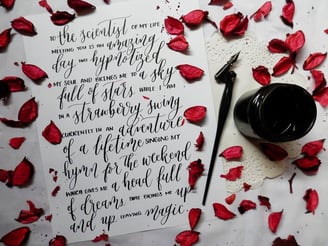 TO THE SCIENTIST OF MY LIFE
MEETING YOU IS AN amazing
day HAS hypnotized
MY SOUL AND BRINGS ME TO a sky
full of stars WHILE I AM
IN A strawberry swing
QUICKENLIST IN AN adventure
of a lifetime SINGING MY
hymn for the weekend
WHICH GIVES ME a head full
of dreams THAT KEEPS ME up
and up LEAVING magic